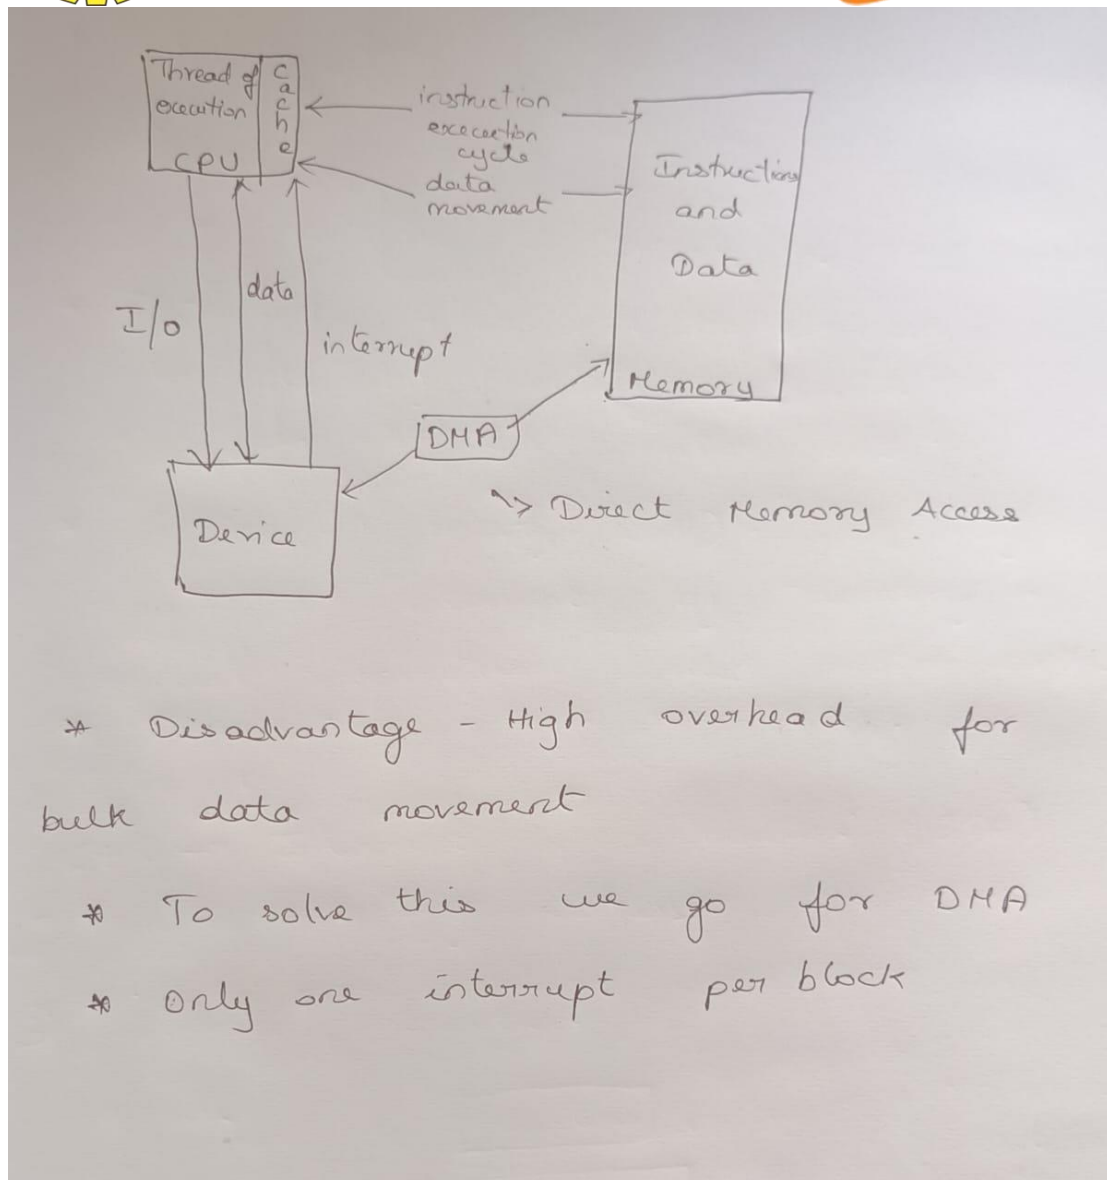 Thread of
execution
CPU
Cache
instruction
execution
cycle
data
movement
Instructions
and
Data
Memory
I/O
data
interrupt
DMA
Device
Direct Memory Access
* Disadvantage - High overhead for
bulk data movement
* To solve this we go for DMA
* Only one interrupt per block